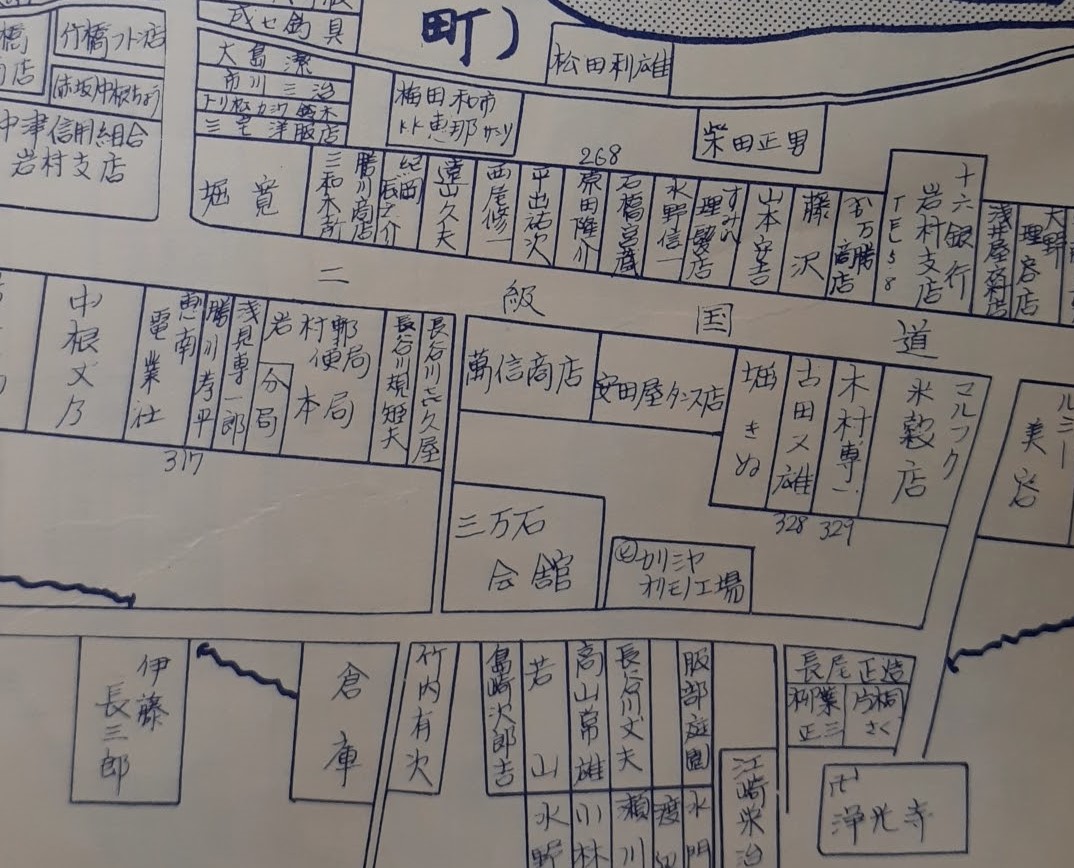 町)
松田利雄
釣具
竹橋フトン店
大島潔
市川三治
三宅洋服店
中津信用組合
岩村支店
梅田和市
恵那
柴田正男
268
堀寛
三和木
勝川商店
遠山久夫
西尾修一
平出祐次
原田隆介
石橋宮蔵
水野信一
すみれ
理髪店
山本安吉
藤沢
商店
十六銀行
岩村支店
TEL58
大野
理容店
二級国道
中根丈夕
恵南
電業社
勝川孝平
浅見専一郎
岩村郵便局
分局
本局
長谷川規矩夫
長谷川㐂久屋
317
萬信商店
安田屋タンス店
堀きぬ
古田又雄
木村専一
マルフク
米穀店
328
329
美容
三万石
会館
カリミヤ
オリモノ工場
伊藤
長三郎
倉庫
竹内有次
島崎次郎吉
若山
高山常雄
長谷川丈夫
服部庭園
長尾正造
正三
片桐
さく
水野
小林
瀬川
渡辺
水門
江崎栄治
卍
浄光寺